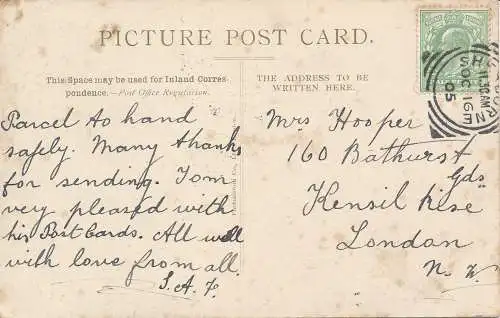 PICTURE POST CARD.
This Space may be used for Inland Corres-
pondence.—Post Office Regulation.
THE ADDRESS TO BE
WRITTEN HERE.
Parcel to hand
safely. Many thanks
for sending. Tom
very pleased with
his Post Cards. All well
with love from all.
S.A.F.
Mrs Hooper
160 Bathurst
Gds
Kensil Rise
London
N. W.
11.30AM
OC 16
05